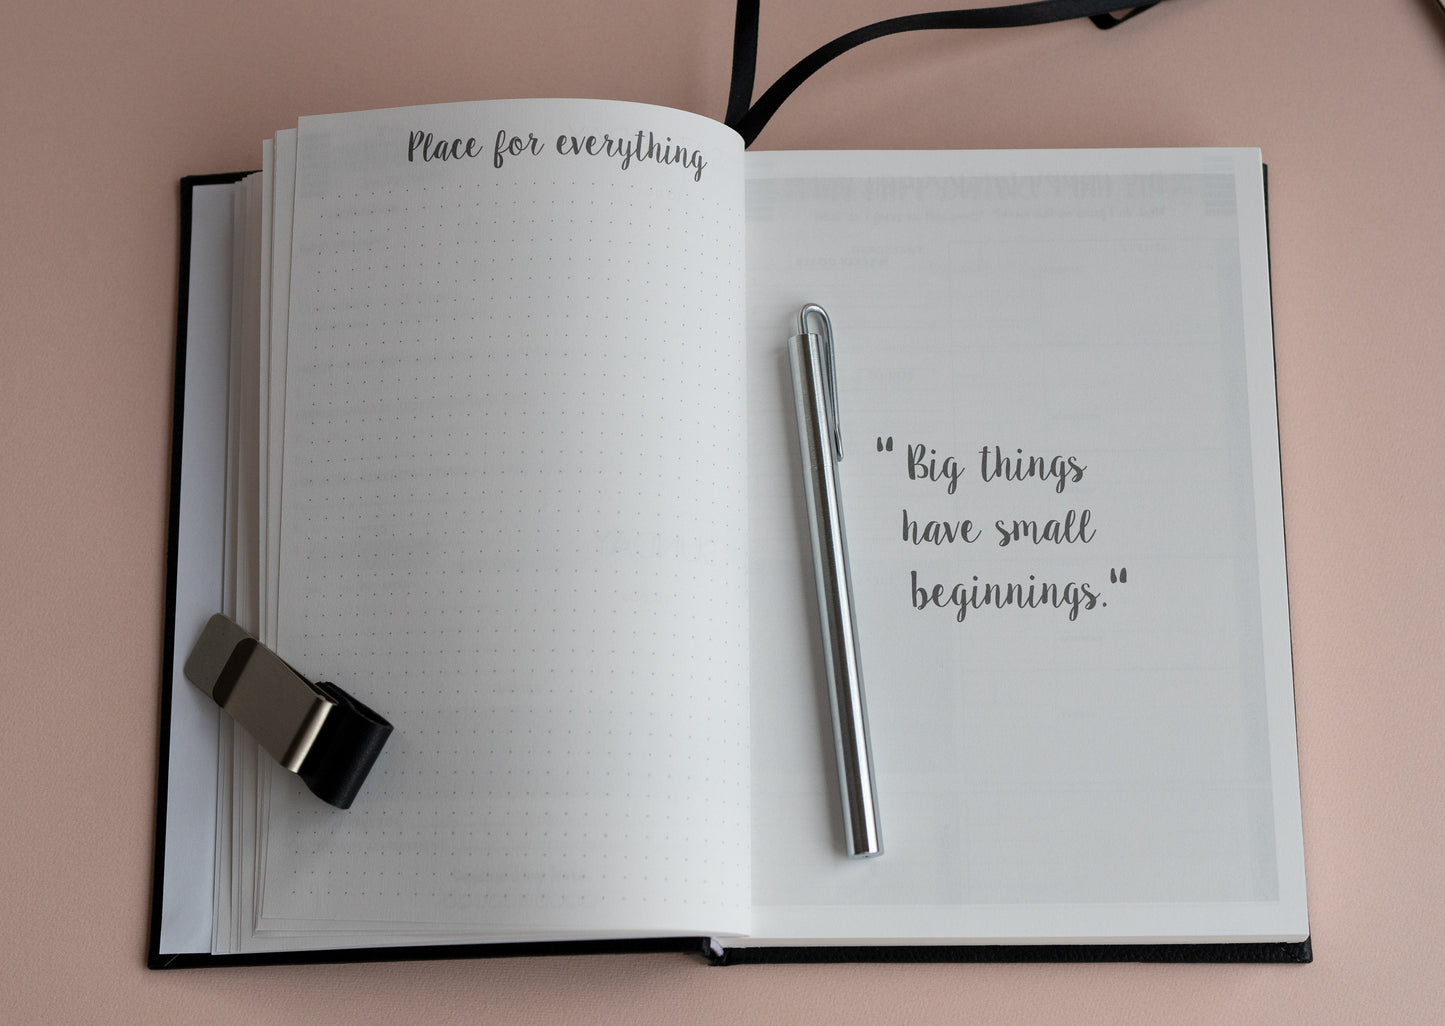 Place for everything
“Big things
have small
beginnings.“